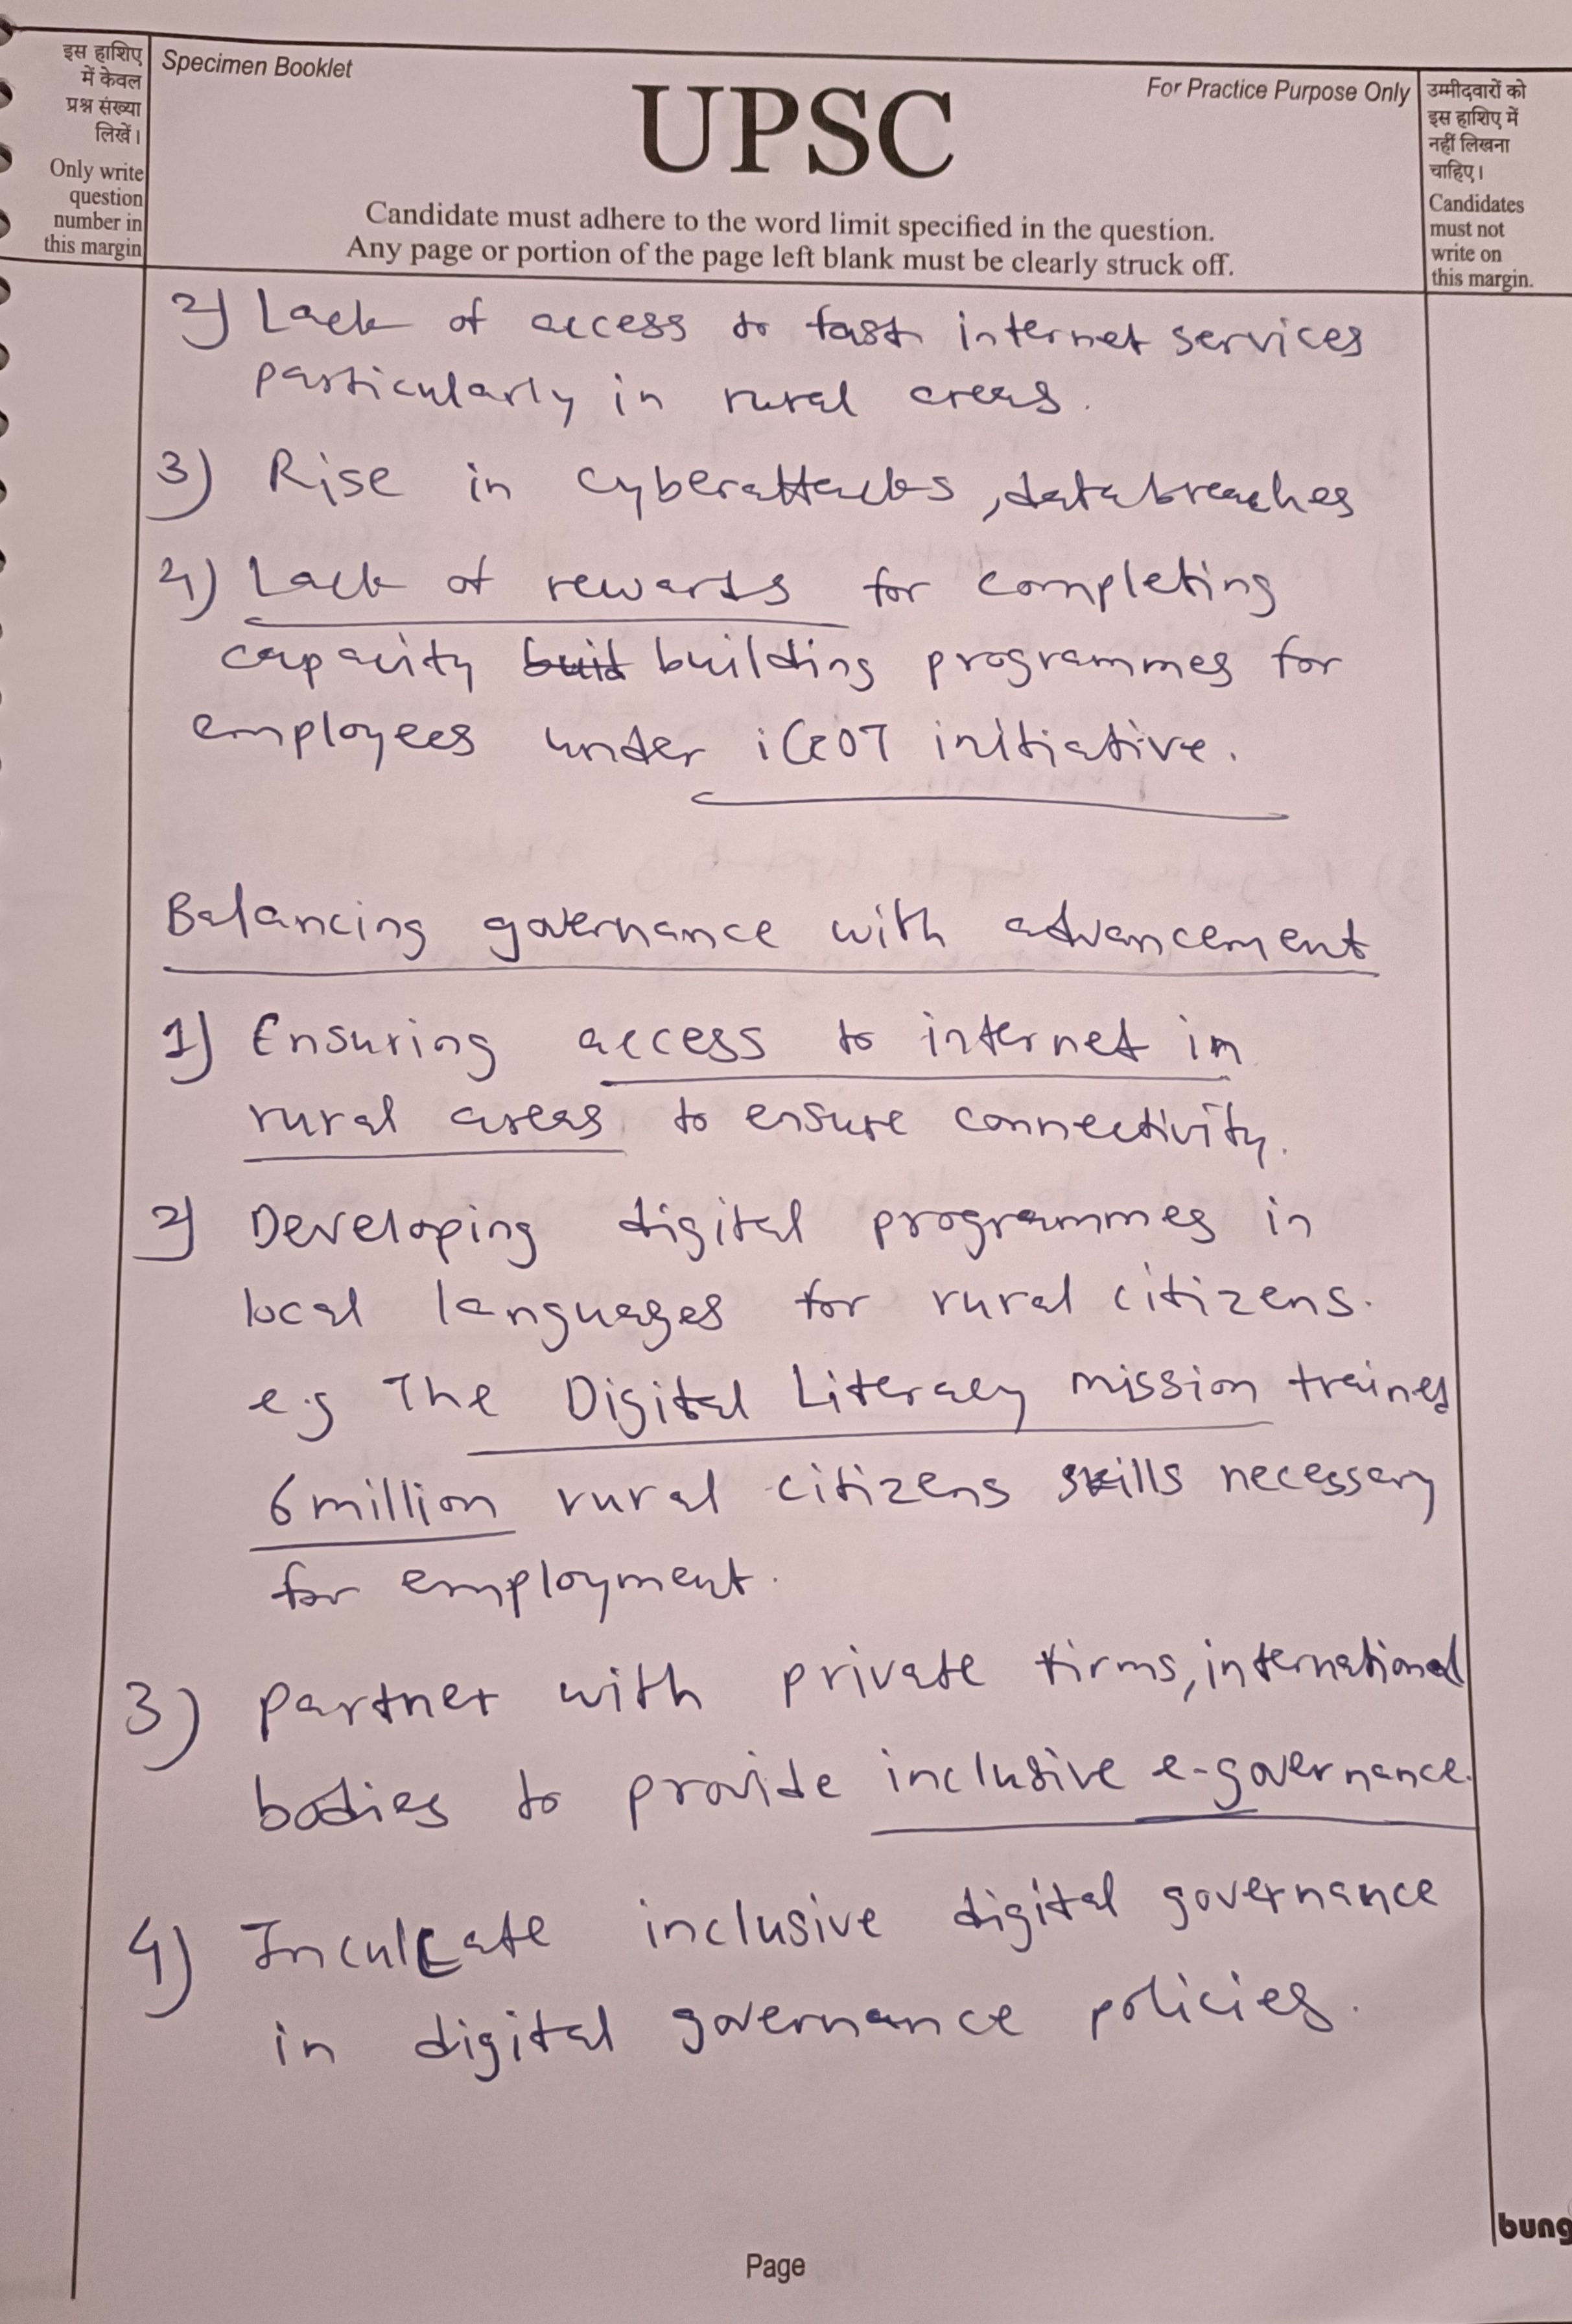 इस हाशिए
में केवल
प्रश्न संख्या
लिखें।
Only write
question
number in
this margin
Specimen Booklet
UPSC
For Practice Purpose Only
Candidate must adhere to the word limit specified in the question.
Any page or portion of the page left blank must be clearly struck off.
उम्मीदवारों को
इस हाशिए में
नहीं लिखना
चाहिए।
Candidates
must not
write on
this margin.
2) Lack of access to fast internet services
particularly in rural areas.
3) Rise in cyberattacks, databreaches
4) Lack of rewards for completing
capacity buid building programmes for
employees under iGOT initiative.
Balancing governance with advancement
1) Ensuring access to internet in
rural areas to ensure connectivity.
2) Developing digital programmes in
local languages for rural citizens.
e.g The Digital Literacy mission trained
6 million rural citizens skills necessary
for employment.
3) Partner with private firms, international
bodies to provide inclusive e-governance.
4) Inculcate inclusive digital governance
in digital governance policies.
Page
bung